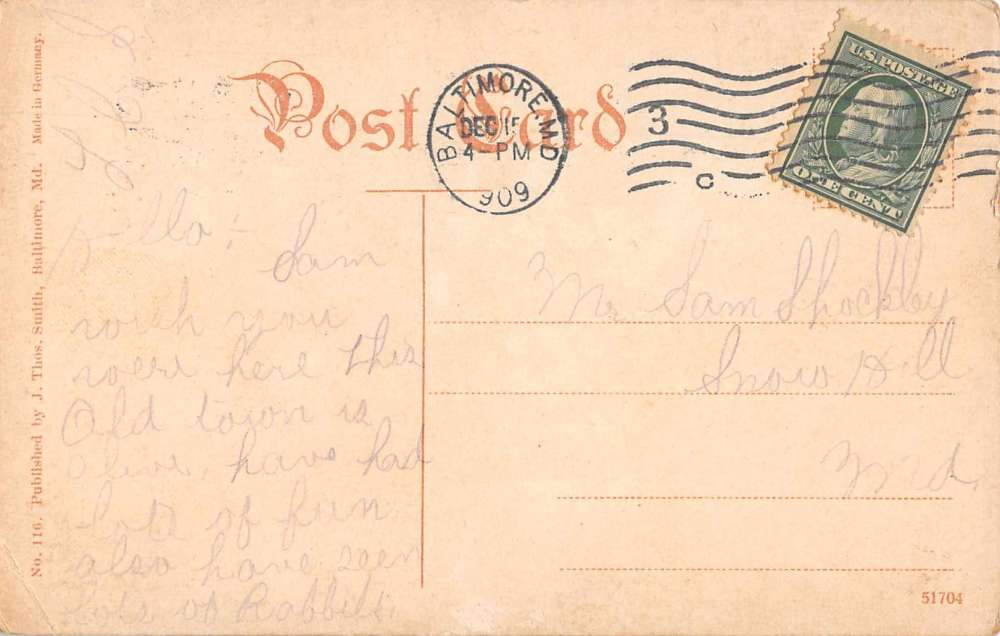 Post Card
BALTIMORE, MD
DEC 15
4-PM
909
3
C
U.S. POSTAGE
ONE CENT
No. 116. Published by J. Thos. Smith, Baltimore, Md. Made in Germany.
Hello:
Sam
wish you
were here this
Old town is
alive, have had
lots of fun
also have seen
lots of Rabbits
Mr Sam Shockley
Snow Hill
Md.
51704